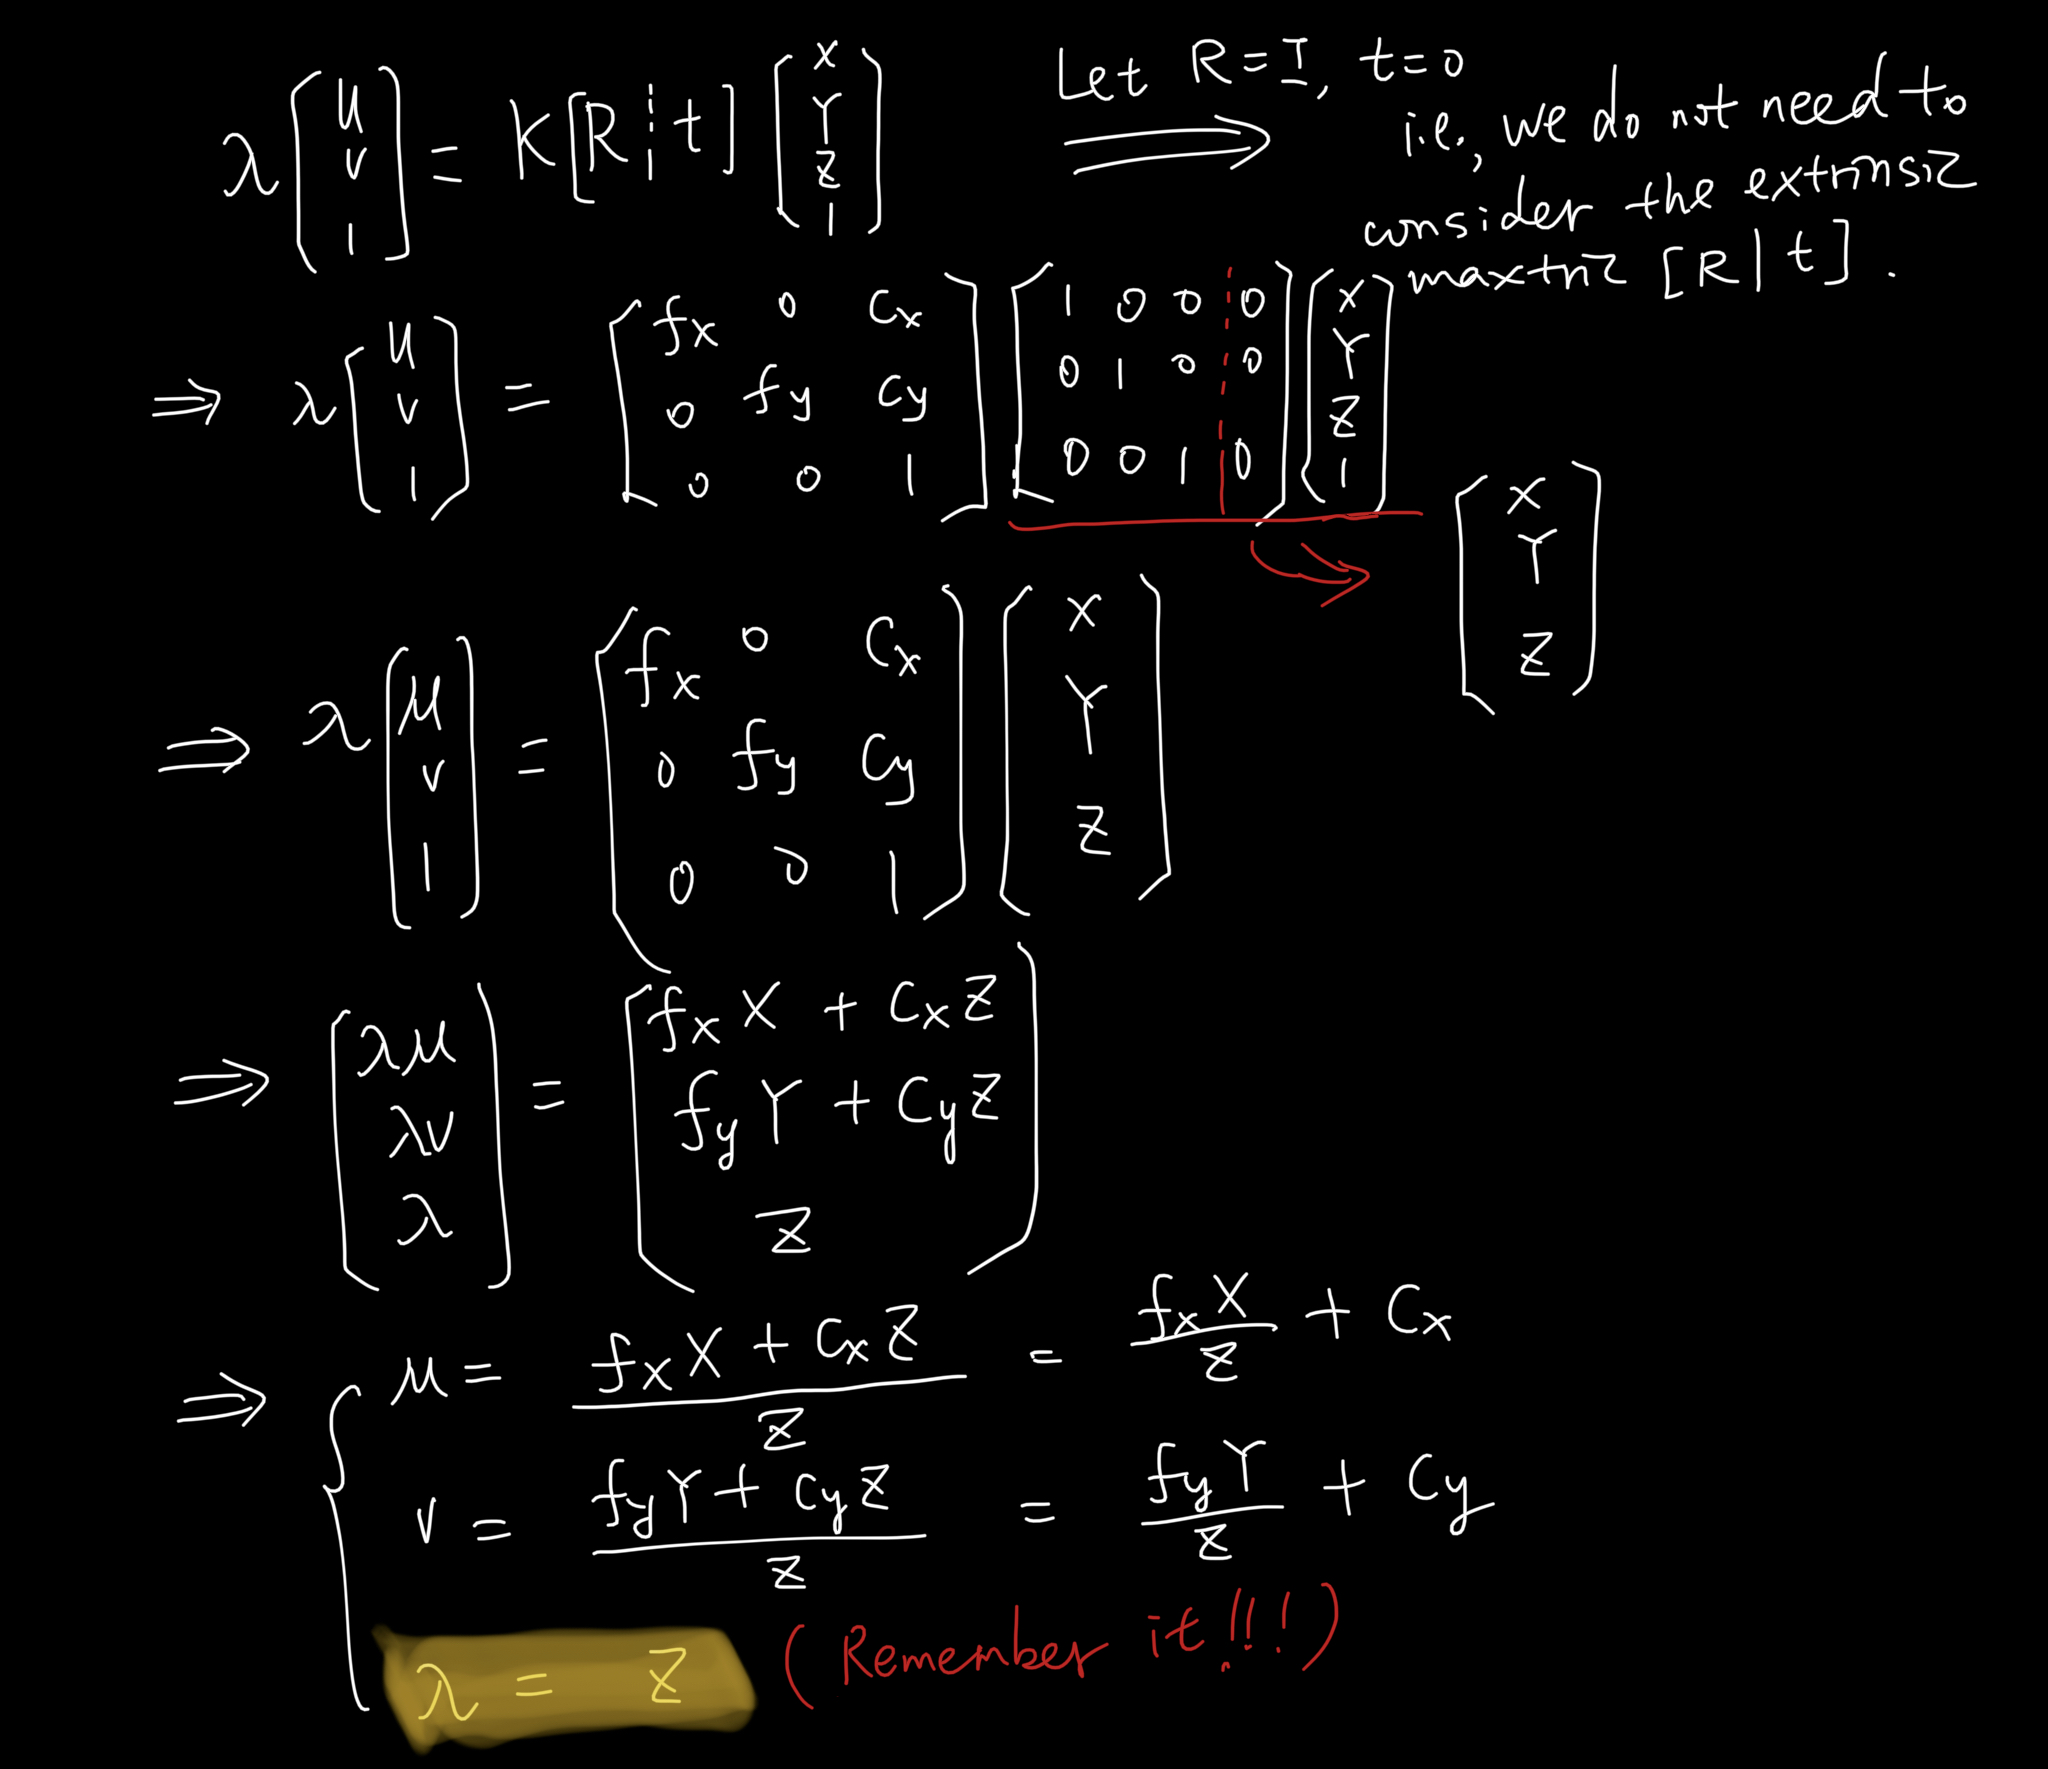 λ[u v 1] = K[R ¦ t] [X Y Z 1]
Let R=I, t=0
i.e., we do not need to
consider the extrinsic
maxtric [R | t].
⇒ λ[u v 1] = [fx 0 cx; 0 fy cy; 0 0 1] [1 0 0 0; 0 1 0 0; 0 0 1 0] [X Y Z 1]
[X Y Z]
⇒ λ[u v 1] = [fx 0 cx; 0 fy cy; 0 0 1] [X Y Z]
⇒ [λu; λv; λ] = [fx X + cx Z; fy Y + cy Z; Z]
⇒ { u = (fx X + cx Z) / Z = fx X / Z + cx
v = (fy Y + cy Z) / Z = fy Y / Z + cy
λ = Z (Remember it!!!)